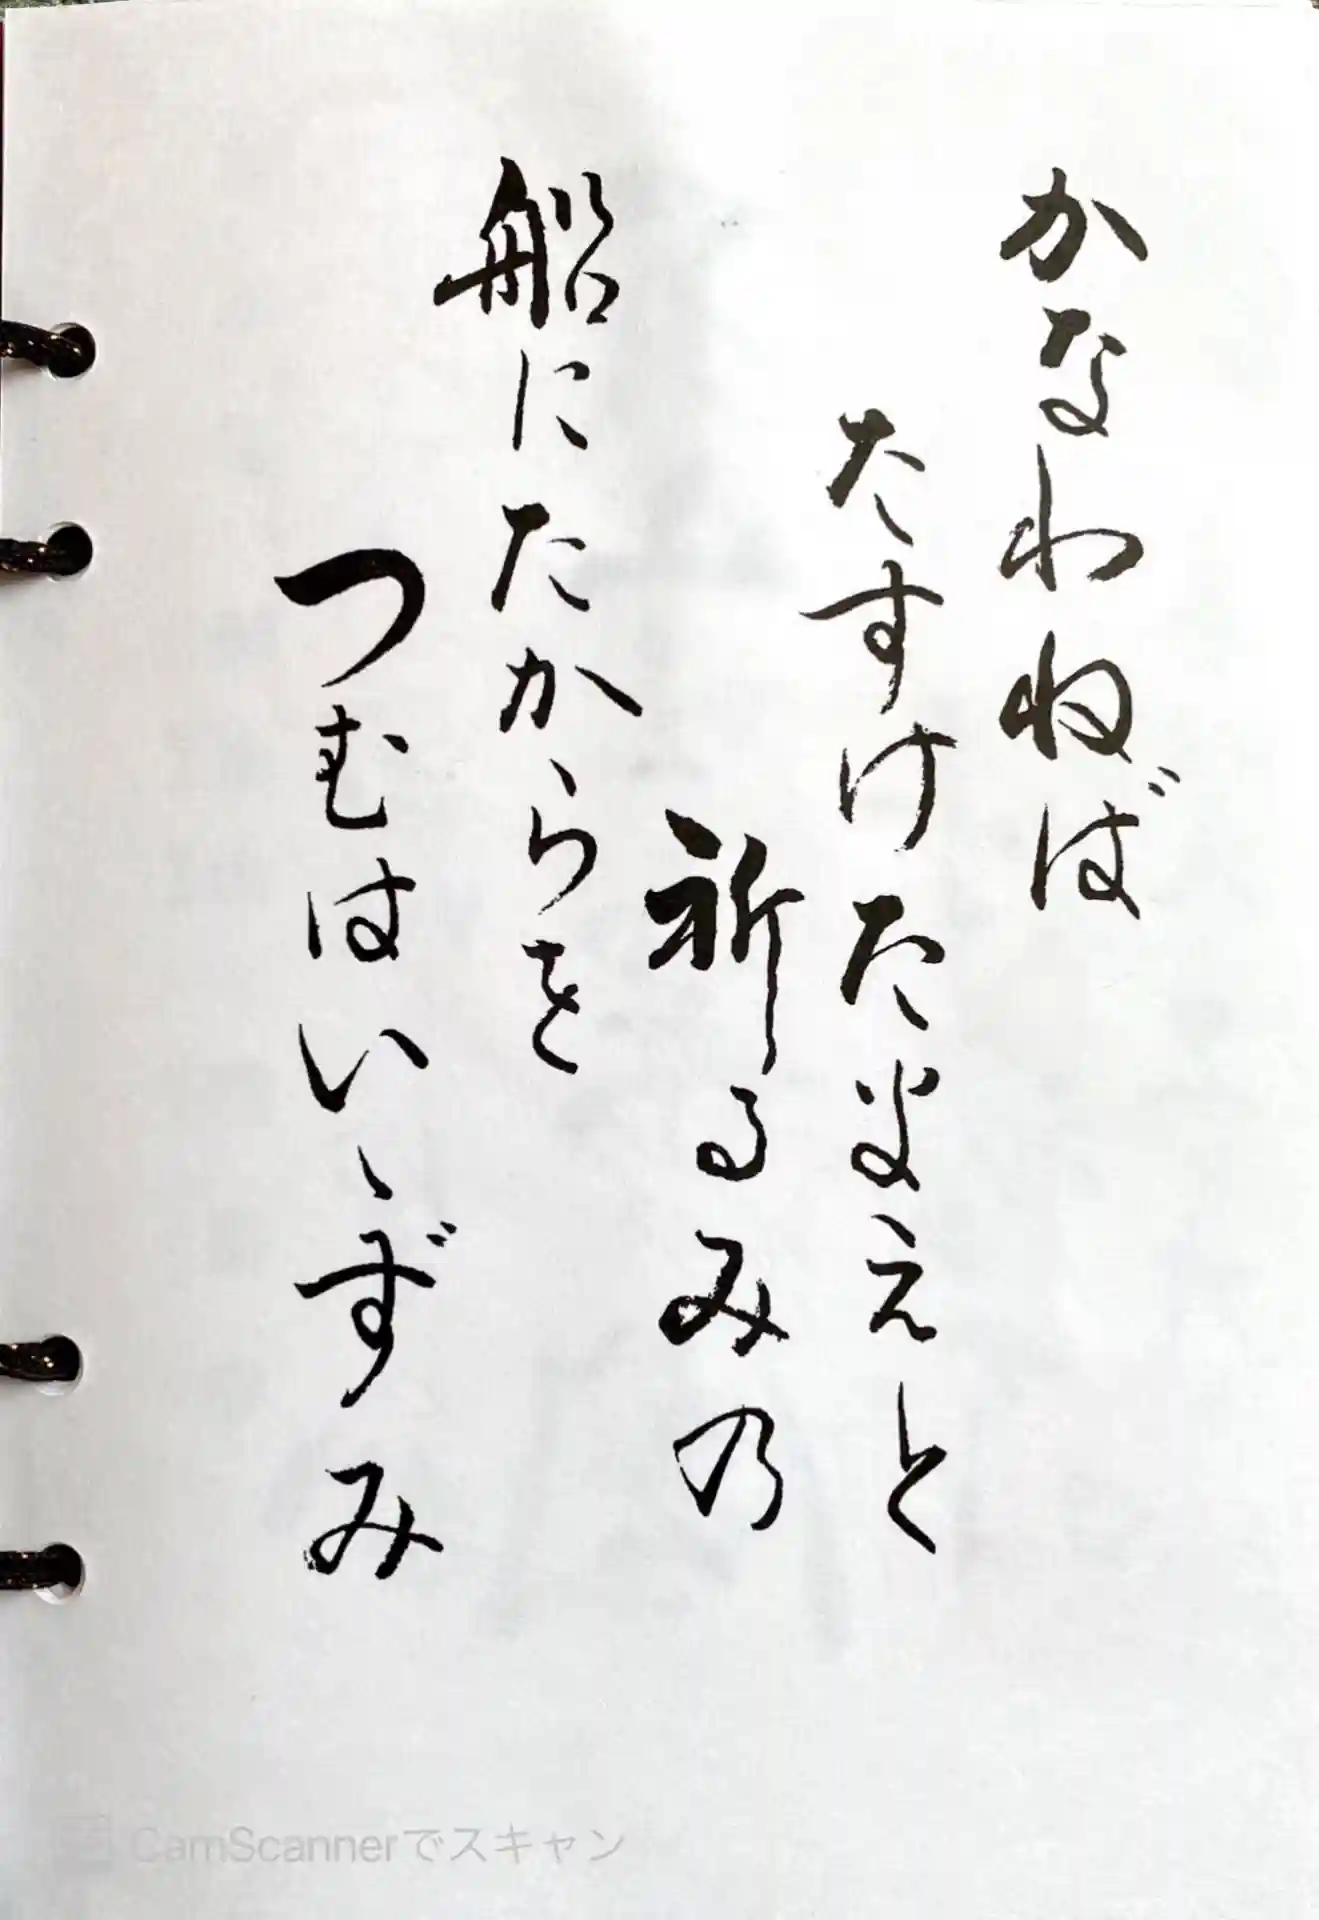 かなわねば
たすけたまえと
祈るみの
船にたからを
つむはいゝずみ
CamScannerでスキャン